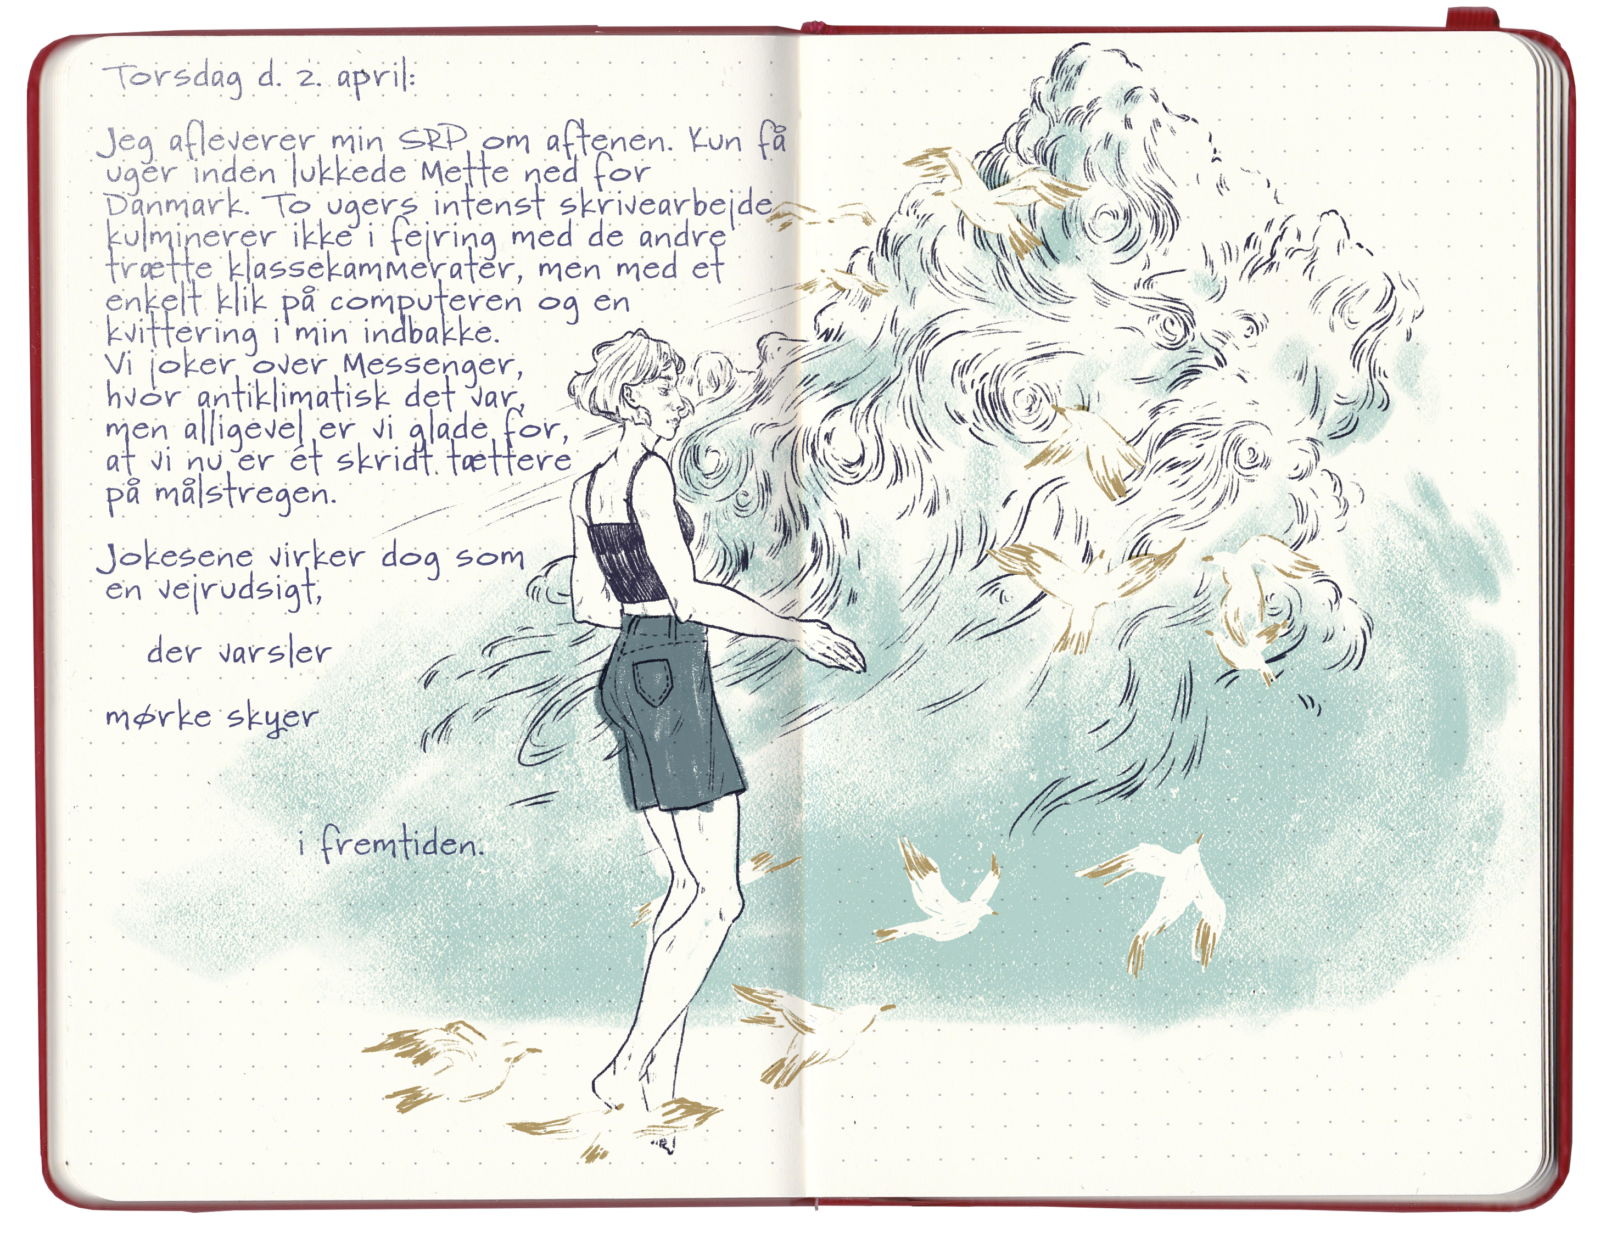 Torsdag d. 2. april:
Jeg afleverer min SRP om aftenen. Kun få
uger inden lukkede Mette ned for
Danmark. To ugers intenst skrivearbejde
kulminerer ikke i fejring med de andre
trætte klassekammerater, men med et
enkelt klik på computeren og en
kvittering i min indbakke.
Vi joker over Messenger,
hvor antiklimatisk det var,
men alligevel er vi glade for,
at vi nu er ét skridt tættere
på målstregen.
Jokesene virker dog som
en vejrudsigt,
der varsler
mørke skyer
i fremtiden.